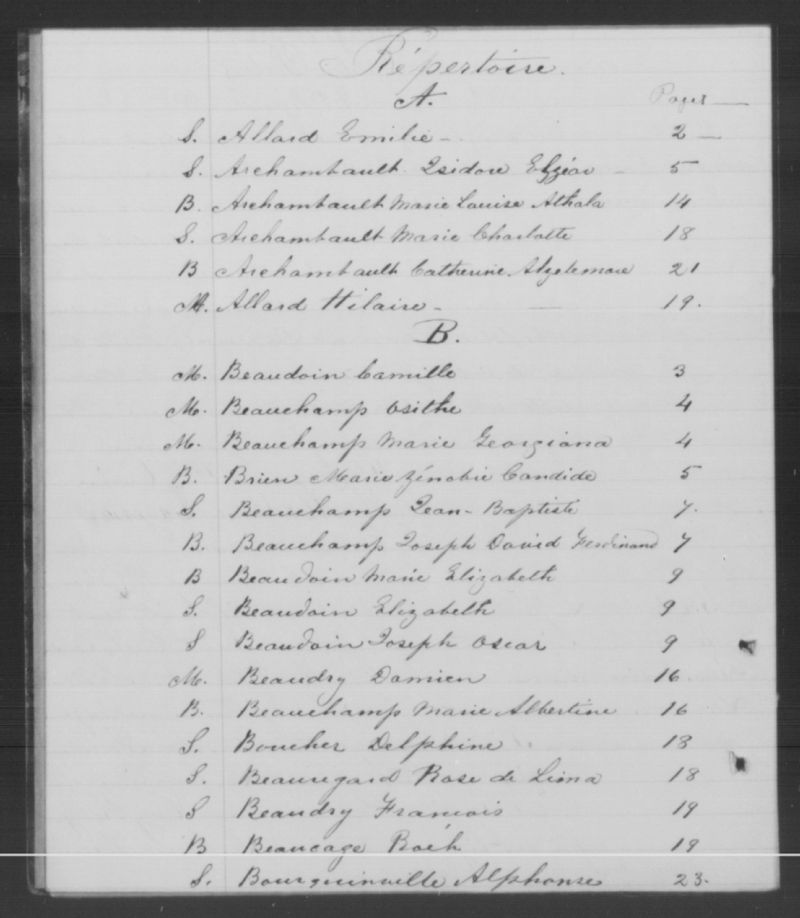 Répertoire.
A. Pages
S. Allard Emilie 2
S. Archambault Isidore Elzéar 5
B. Archambault Marie Louise Athala 14
S. Archambault Marie Charlotte 18
B Archambault Catherine 21
M. Allard Hilaire 19.
B.
M. Beaudoin Camille 3
M. Beauchamp Osithe 4
M. Beauchamp Marie Georgiana 4
B. Brien Marie Zénobie Candide 5
S. Beauchamp Jean-Baptiste 7.
B. Beauchamp Joseph David Ferdinand 7
B Beaudoin Marie Elizabeth 9
S. Beaudoin Elizabeth 9
S Beaudoin Joseph Oscar 9
M. Beaudry Damien 16
B. Beauchamp Marie Albertine 16
S. Boucher Delphine 18
S. Beauregard Rose de Lima 18
S Beaudry Francois 19
B Beaucage Roéh 19
S. Bourguinville Alphonse 23.